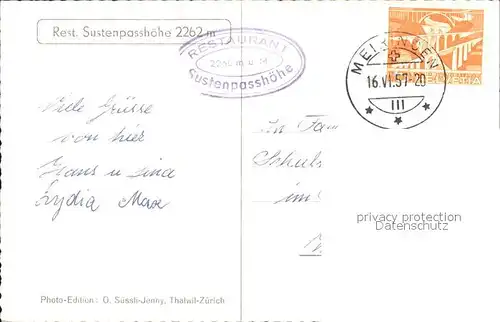 Rest. Sustenpasshöhe 2262 m
RESTAURANT
Sustenpasshöhe
MEIRINGEN
16.VI.57-20
III
Viele Grüsse
von hier
Hans u Lina
Lydia Max
Fam
Schul
im
privacy protection
Datenschutz
Photo-Edition: O. Süssli-Jenny, Thalwil-Zürich